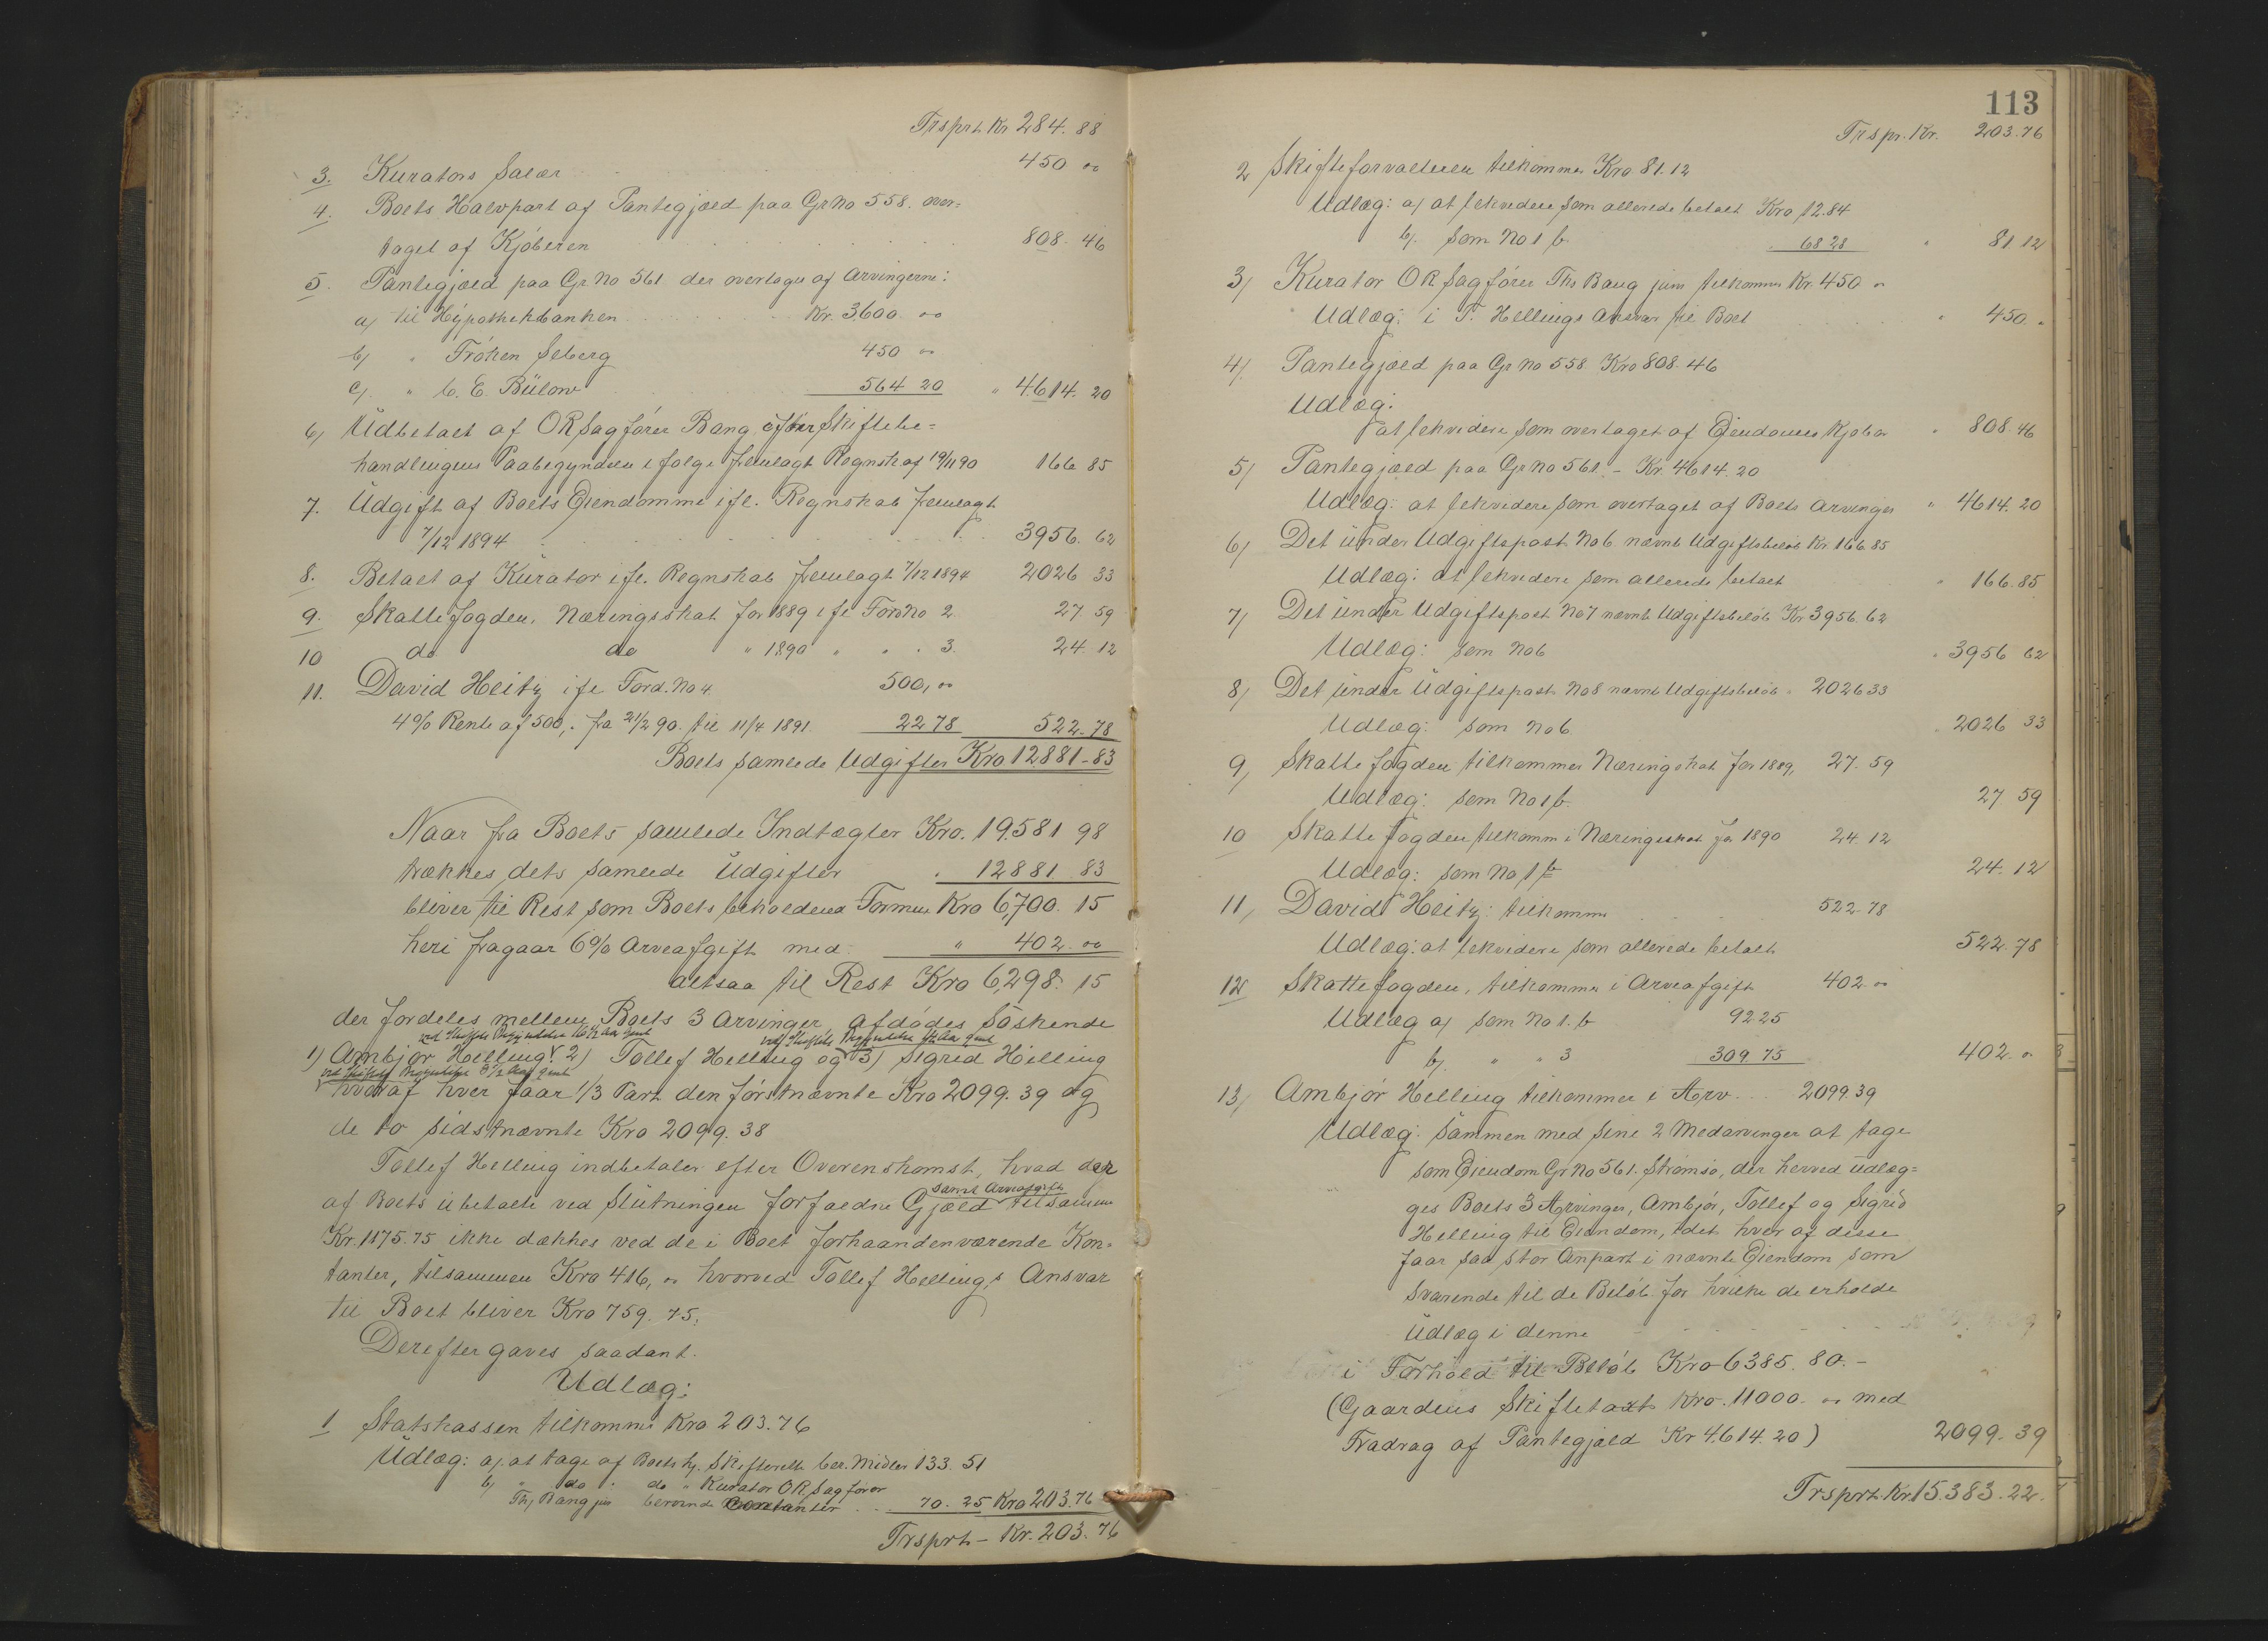 Trsprt Kr 284. 88
3. Kurators Salær 450 00
4. Boets Halvpart af Pantegjæld paa Gr No 558. over=
taget af Kjøberen 808. 46
5. Pantegjæld paa Gr No 561 der overtoges af Arvingerne:
a) til Hypothekbanken Kr. 3600. 00
b) " Frøken Seberg 450 00
c) " C. E. Bülow 564 20 " 4614. 20
6) Udbetalt af ORSagfører Bang efter Skiftebe=
handlingens Paabegyndelse ifølge fremlagt Regnsk. af 19/11 90 166 85
7. Udgift af Boets Eiendomme ifl. Regnskab fremlagt
7/12 1894 3956. 62
8. Betalt af Kurator ifl. Regnskab fremlagt 7/12 1894 2026 33
9. Skattefogden, Næringsskat for 1889 ifl Ford No 2 27. 59
10 do do " 1890 " " . 3. 24. 12
11. David Heitz ifl Ford. No 4 500,00
4% Rente af 500,. fra 21/2 90. til 11/4 1891. 22 78 522. 78
Boets samlede Udgifter Kro 12881-83
Naar fra Boets samlede Indtægter Kro. 19.581 98
trækkes dets samlede Udgifter " 12881. 83
bliver til Rest som Boets beholdne Formue Kro 6,700. 15
heri fragaar 6% Arveafgift med " 402. 00
altsaa til Rest Kro 6,298. 15
der fordeles mellem Boets 3 Arvinger afdødes Søskende
ved Skiftets Begyndelse 16 1/2 Aar gml ved Skiftets Begyndelse Aar gml
1) Ambjør Helling 2) Tollef Helling og 3) Sigrid Helling
ved Skiftets Begyndelse 8 1/2 Aar gml
hvoraf hver faar 1/3 Part den førstnævnte Kro 2099. 39 og
de to sidstnævnte Kro 2099. 38
Tollef Helling indbetaler efter Overenskomst, hvad der
samt Arveafgift
af Boets ubetalte ved Slutningen forfaldne Gjæld tilsammen
Kr. 1175. 75 ikke dækkes ved de i Boet forhaandenværende Kon=
tanter, tilsammen Kro 416, 00 hvorved Tollef Hellings Ansvar
til Boet bliver Kro 759. 75.
Derefter gaves saadant
Udlæg:
1 Statskassen tilkommer Kro 203.76
Udlæg: a) at tage af Boets hj. Skifteretten ber. Midler 133. 51
b) " do . do " Kurator ORSagfører
Ths Bang jun beroende Contanter 70. 25 Kro 203.76
Trsprt - Kr. 203. 76
113
Trspr. Kr. 203.76
2 Skifteforvalteren tilkommer Kro 81.12
Udlæg: a) at likvidere som allerede betalt Kro 12.84
b). som No 1 b. 68 28 " 81 12
3) Kurator ORSagfører Ths Bang jun tilkommer Kr. 450 00
Udlæg: i T. Hellings Ansvar til Boet " 450. "
4) Pantegjæld paa Gr No 558 Kro 808. 46
Udlæg:
at likvidere som overtaget af Eiendommens Kjøber " 808. 46
5) Pantegjæld paa Gr No 561. - Kr. 4614. 20
Udlæg: at likvidere som overtaget af Boets Arvinger " 4614. 20
6) Det under Udgiftspost No 6 nævnte Udgiftsbeløb Kr. 166. 85
Udlæg: at likvidere som allerede betalt " 166. 85
7) Det under Udgiftspost No 7 nævnte Udgiftsbeløb Kr 3956. 62
Udlæg: som No 6 " 3956 62
8) Det under Udgiftspost No 8 nævnte Udgiftsbeløb " 2026 33
Udlæg: som No 6 " 2026 33
9) Skattefogden tilkommer Næringsskat for 1889, 27. 59
Udlæg: som No 1 b. 27 59
10 Skattefogden tilkomm i Næringsskat for 1890 24. 12
Udlæg: som No 1 b 24. 12
11) David Heitz: tilkommer 522. 78
Udlæg: at likvidere som allerede betalt 522. 78
12 Skattefogden, tilkommer i Arveafgift 402. 00
Udlæg a) som No 1. b 92 25
b). " " 3 309. 75 402. 00
13) Ambjør Helling tilkommer i Arv 2099. 39
Udlæg: sammen med sine 2 Medarvinger at tage
som Eiendom Gr No 561. Strømsø, der herved udlæg=
ges Boets 3 Arvinger, Ambjør, Tollef og Sigrid
Helling til Eiendom, idet hver af disse
faar saa stor Anpart i nævnte Eiendom som
svarende til de Beløb for hvilke de erholde
Udlæg i denne
i Forhold til Beløb Kro 6385. 80. -
(Gaardens Skiftetaxt Kro. 11000. 00 med
Fradrag af Pantegjæld Kr 4,614. 20) 2099. 39
Trsprt. Kr. 15.383. 22.